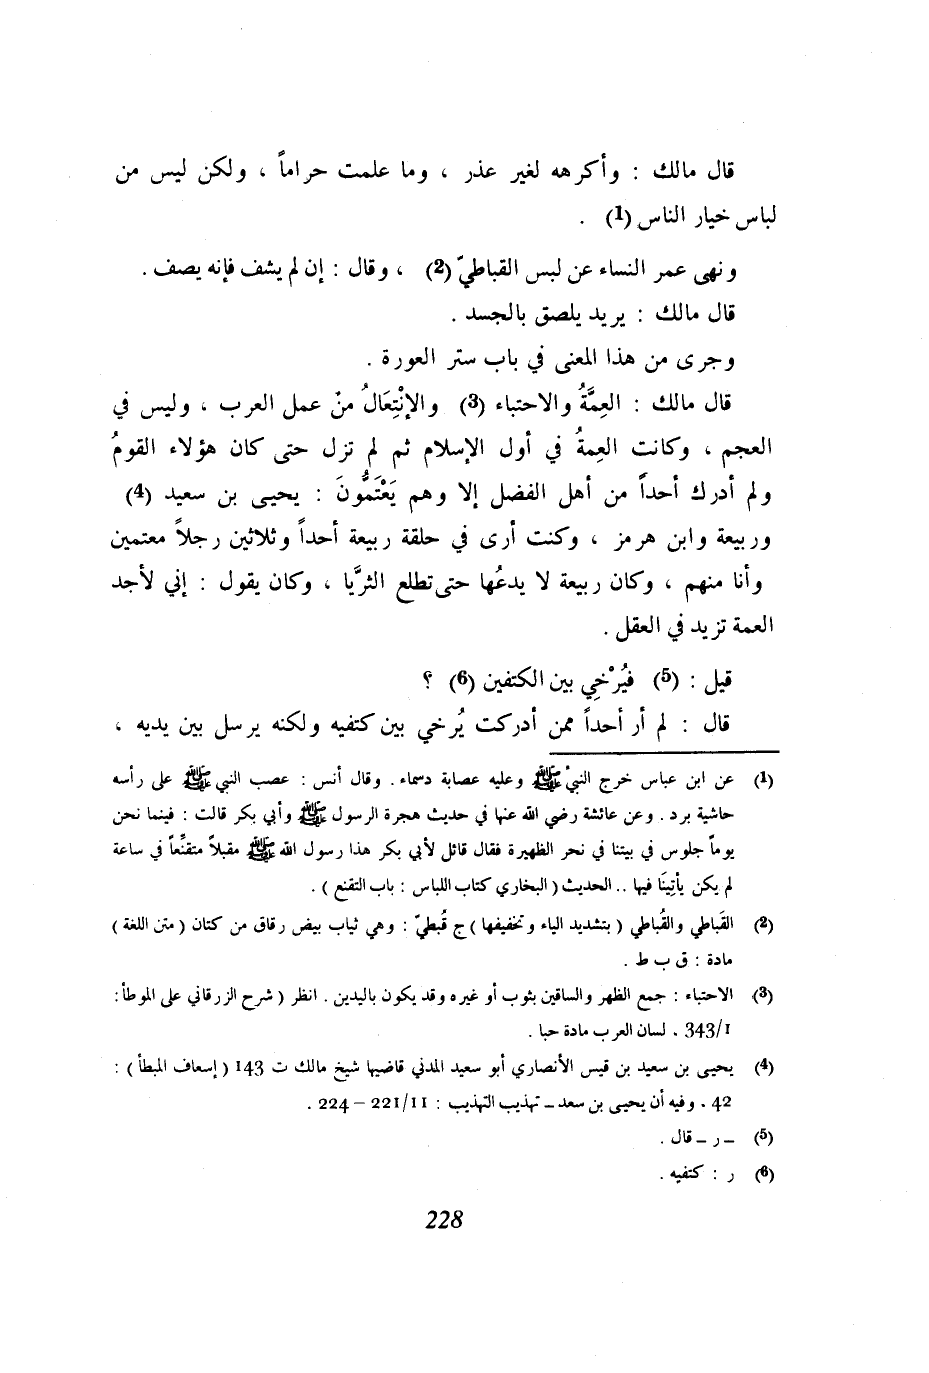 قال مالك : وأكرهه لغير عذر ، وما علمت حراماً ، ولكن ليس من
لباس خيار الناس (1) .
ونهى عمر النساء عن لبس القباطيّ (2) ، وقال : إن لم يشف فإنه يصف .
قال مالك : يريد يلصق بالجسد .
وجرى من هذا المعنى في باب ستر العورة .
قال مالك : العِمَّةُ والاحتباء (3) والإنْتِعَالُ منْ عمل العرب ، وليس في
العجم ، وكانت العِمةُ في أول الإسلام ثم لم تزل حتى كان هؤلاء القومُ
ولم أدرك أحداً من أهل الفضل إلا وهم يَعْتَمُّونَ : يحيى بن سعيد (4)
وربيعة وابن هرمز ، وكنت أرى في حلقة ربيعة أحداً وثلاثين رجلاً معتمين
وأنا منهم ، وكان ربيعة لا يدعُها حتى تطلع الثريَّا ، وكان يقول : إني لأجد
العمة تزيد في العقل .
قيل : (5) فيُرْخِي بين الكتفين (6) ؟
قال : لم أر أحداً ممن أدركت يُرخي بين كتفيه ولكنه يرسل بين يديه ،
(1) عن ابن عباس خرج النبيْ ﷺ وعليه عصابة دسماء . وقال أنس : عصب النبي ﷺ على رأسه
حاشية برد . وعن عائشة رضي الله عنها في حديث هجرة الرسول ﷺ وأبي بكر قالت : فبينما نحن
يوماً جلوس في بيتنا في نحر الظهيرة فقال قائل لأبي بكر هذا رسول الله ﷺ مقبلاً متقنِّعاً في ساعة
لم يكن يأتِينَا فيها .. الحديث ( البخاري كتاب اللباس : باب التقنع ) .
(2) القَباطي والقُباطي ( بتشديد الياء وتخفيفها ) ج قُبطيّ : وهي ثياب بيض رقاق من كتان ( متن اللغة )
مادة : ق ب ط .
(3) الاحتباء : جمع الظهر والساقين بثوب أو غيره وقد يكون باليدين . انظر ( شرح الزرقاني على الموطأ :
343/1 . لسان العرب مادة حبا .
(4) يحيى بن سعيد بن قيس الأنصاري أبو سعيد المدني قاضيها شيخ مالك ت 143 ( إسعاف المبطأ ) :
42 . وفيه أن يحيى بن سعد ــ تهذيب التهذيب : 221/11 – 224 .
(5) ــ ر ــ قال .
(6) ر : كتفيه .
228